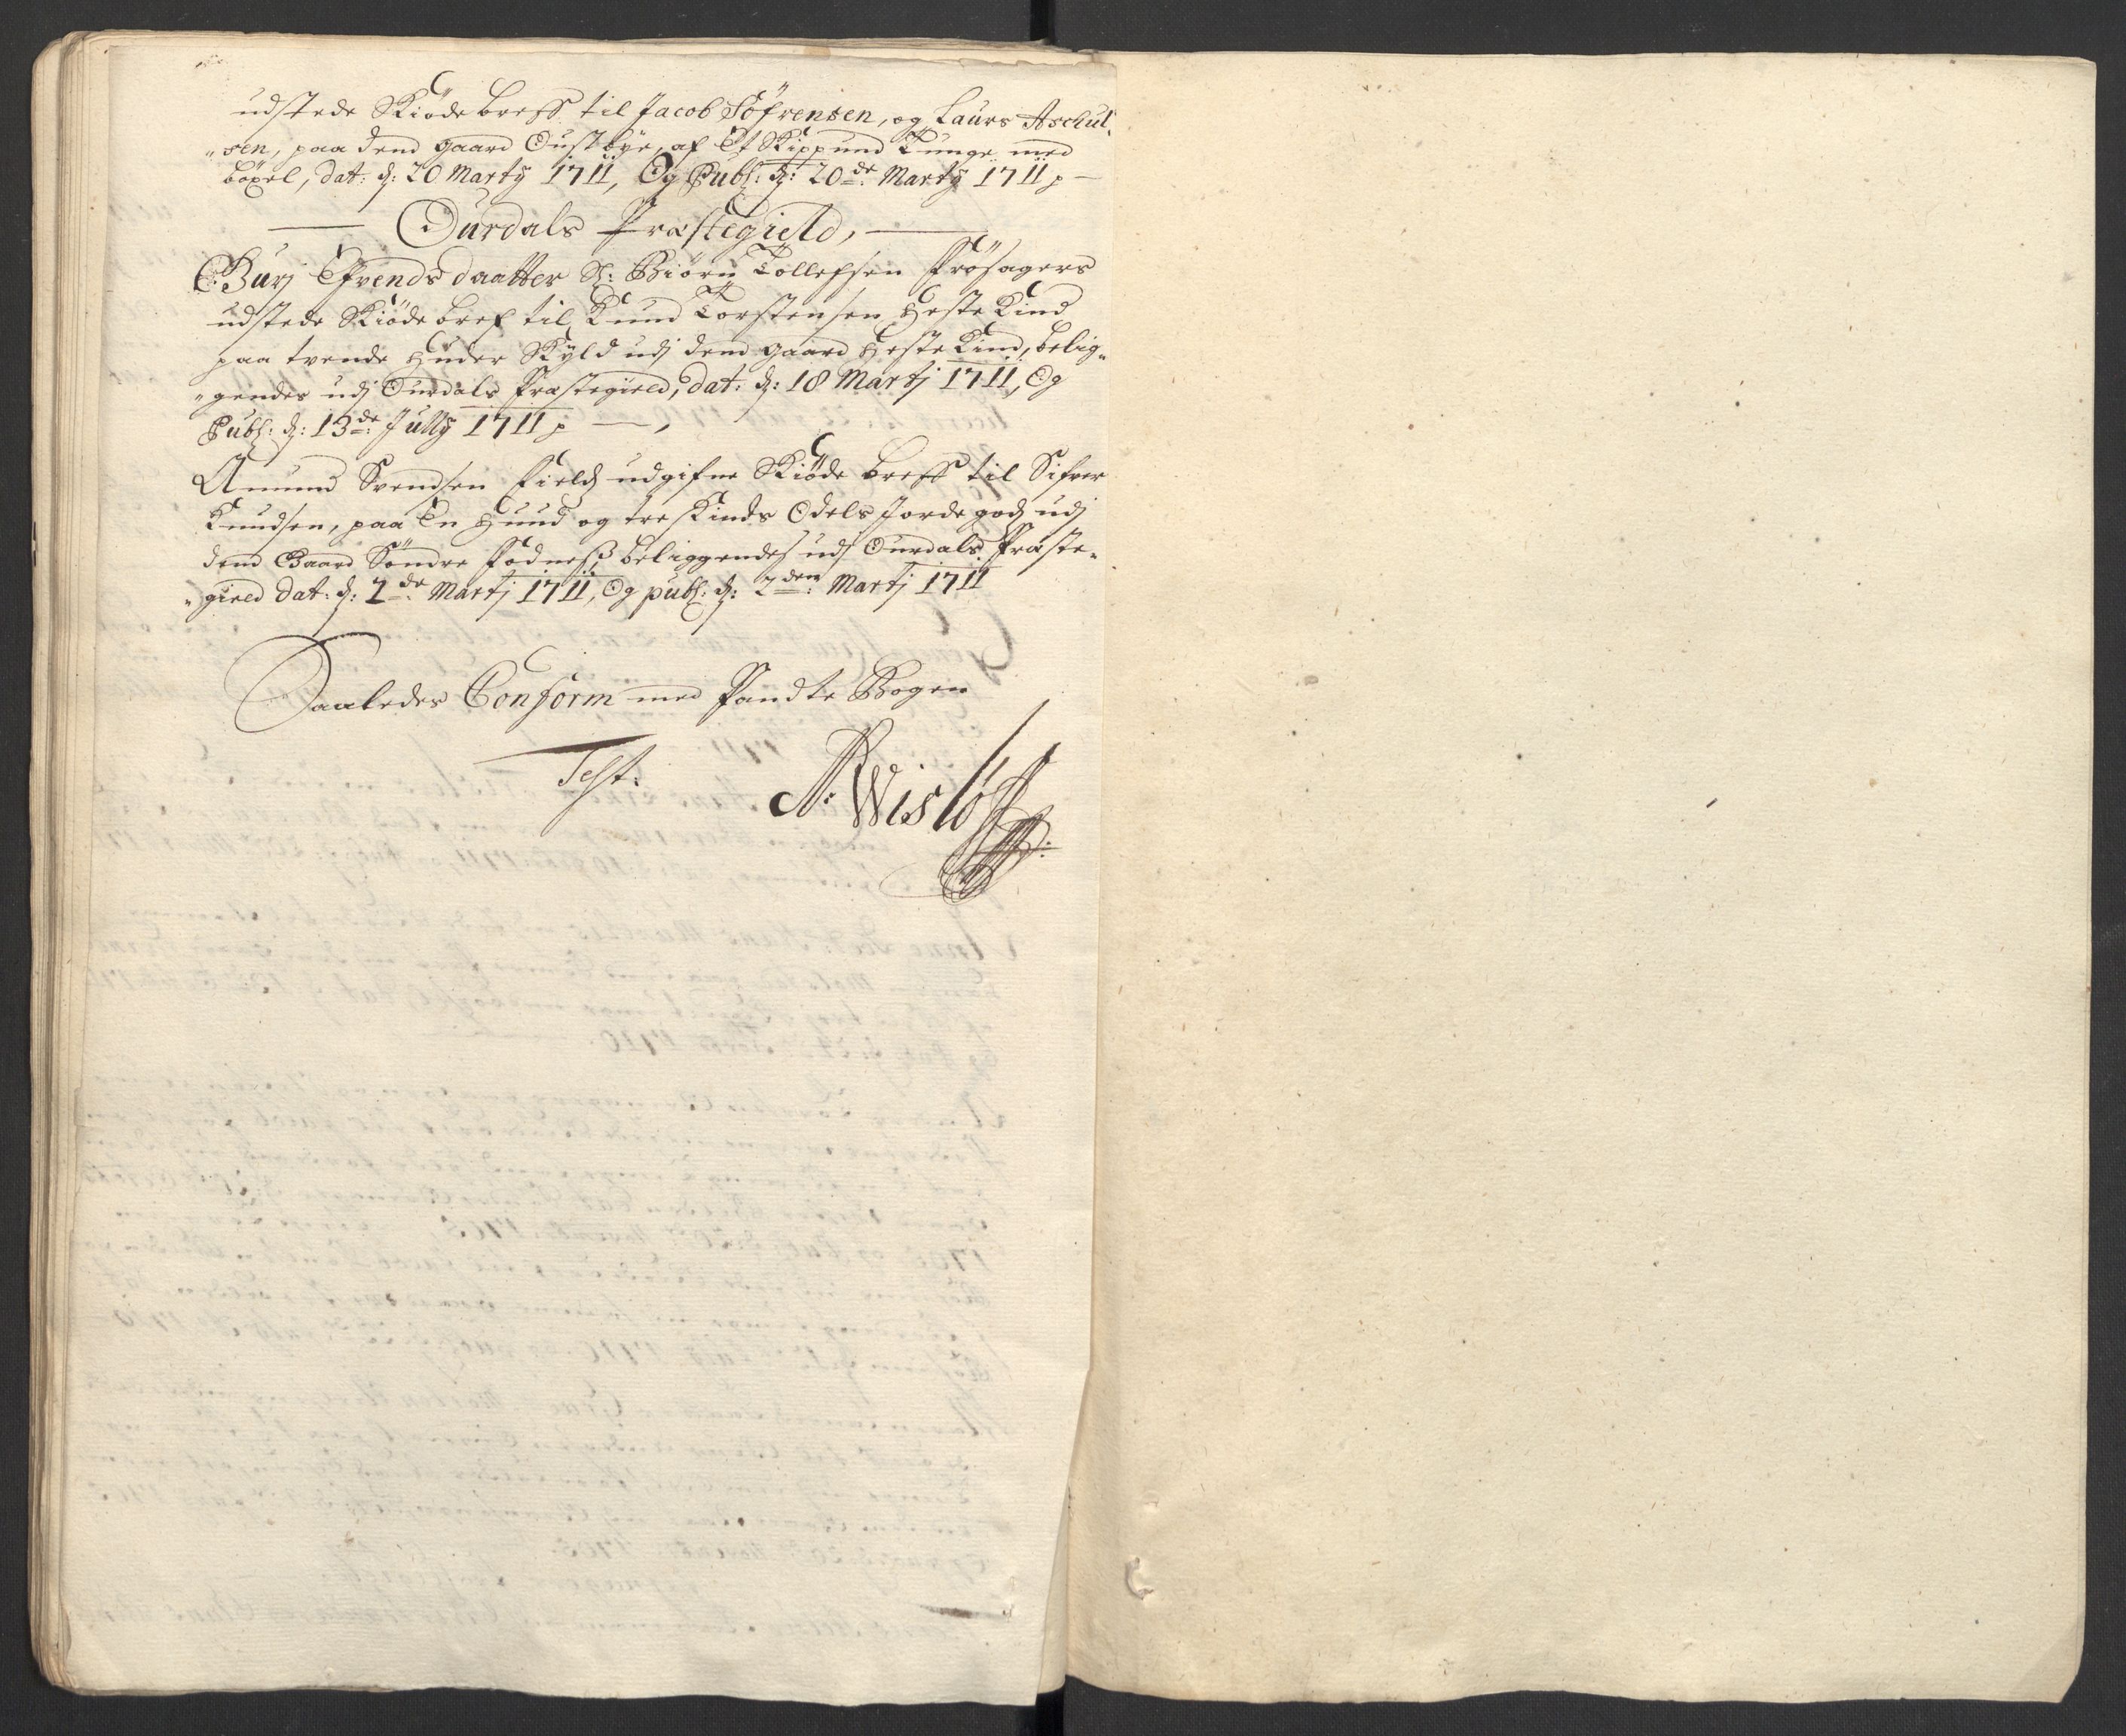 udstede Skiöde breff til Jacob Söfrensen, og Laurs Aschul-
"sen, paa dend gaard Oustbye, af Et Skippund Tunge med
böxel, dat: d: 20 Marty 1711, Og Publ: d: 20de Marty 1711
Ourdals Præstegield,
Guri Efvendsdaatter S: Biörn Tollefsen Frösagers
udstede Skiöde bref til Knud Torstensen HesteKind
paa tvende Huder Skyld udj dend gaard HesteKind, belig-
"gendes udj Ourdals Præstegield, dat: d: 18 Martj 1711, Og
Publ: d: 13de Jully 1711
Amund Svendsen Field udgifne Skiöde breff til Sifver
Knudsen, paa En Huud og tre skinds Odels Jordegods udj
dend Gaard Söndre Fodnesß beliggendes udj Ourdals Præste-
"gield dat: d: 2de Martj 1711, Og publ: d: 2den Martj 1711
Saaledes Conform med Pandte Bogen
Test: A: Wislöff